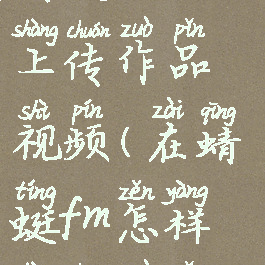 shàng chuán zuò pǐn
上传作品
shì pín zài qīng
视频(在蜻
tíng zěn yàng
蜓fm怎样